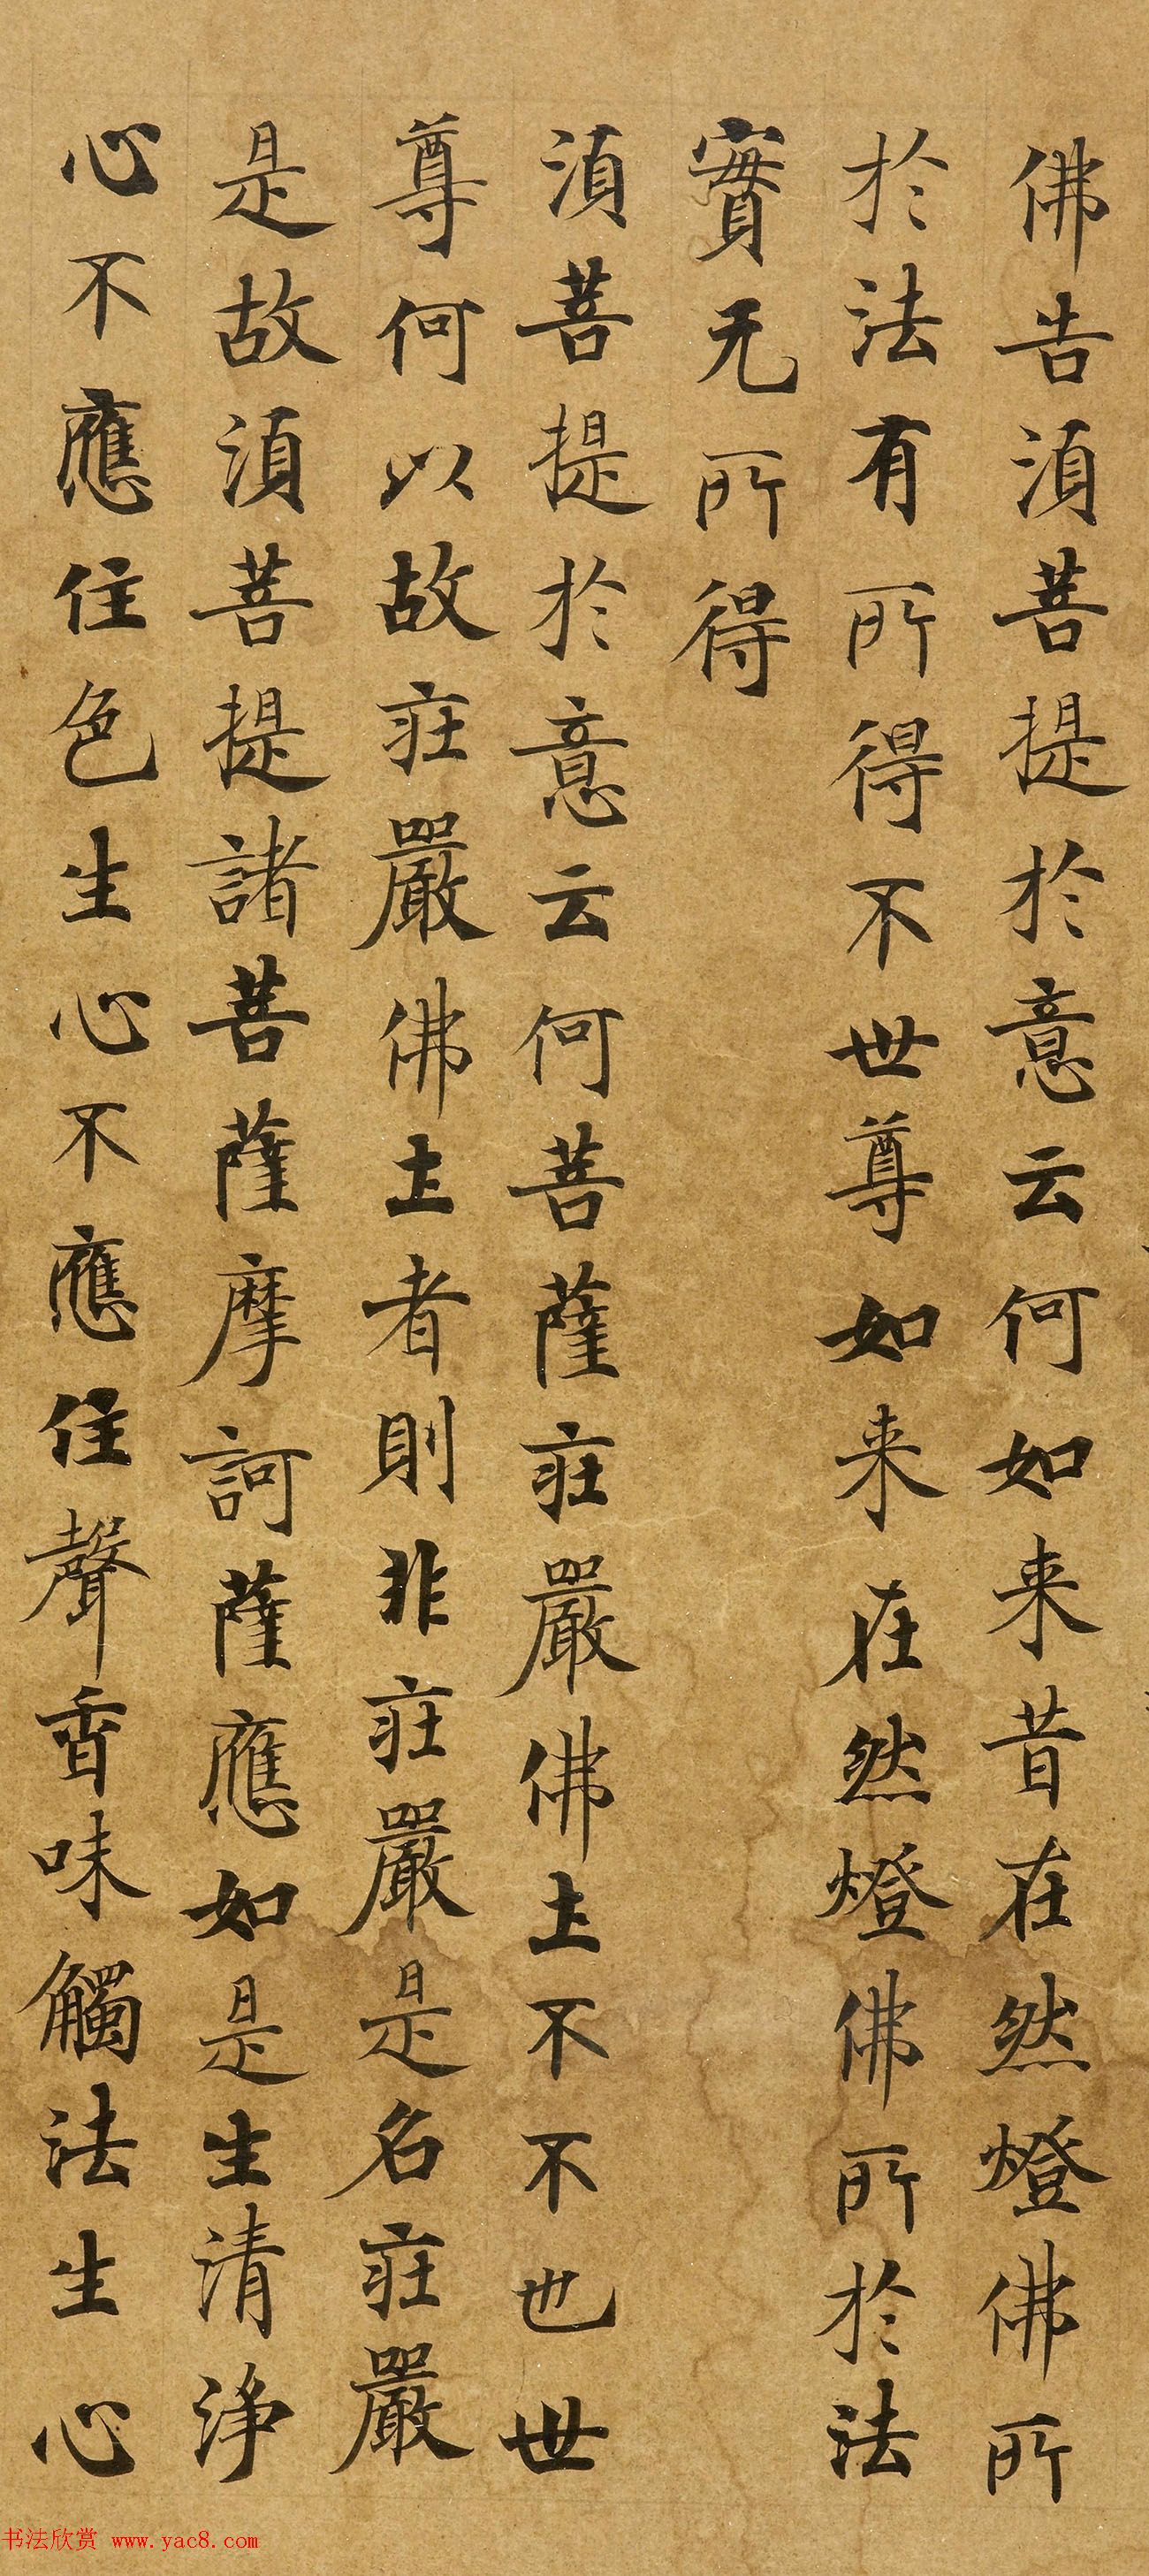 佛告須菩提於意云何如来昔在然燈佛所
於法有所得不世尊如来在然燈佛所於法
實无所得
須菩提於意云何菩薩莊嚴佛土不不也世
尊何以故莊嚴佛土者則非莊嚴是名莊嚴
是故須菩提諸菩薩摩訶薩應如是生清淨
心不應住色生心不應住聲香味觸法生心
书法欣赏 www.yac8.com